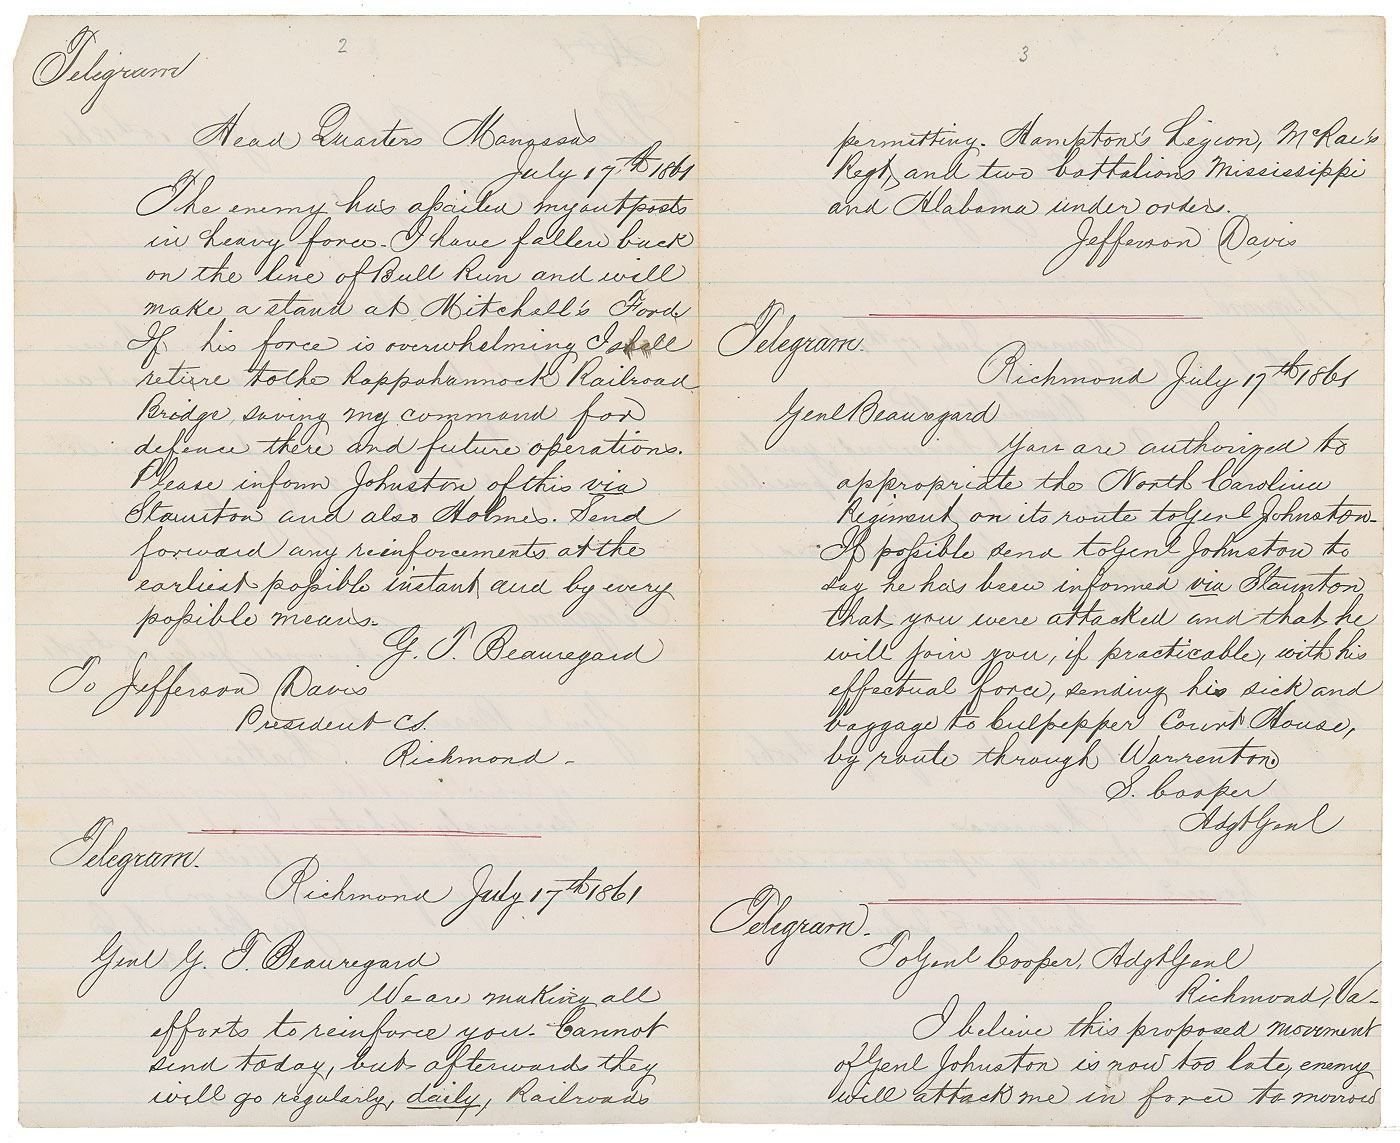 2
Teligram
Head Quarters Manassas
July 17th 1861
The enemy has assailed my outposts
in heavy force. I have fallen back
on the line of Bull Run and will
make a stand at Mitchell's Ford.
If his force is overwhelming I shall
retire to the Rappahannock Railroad
Bridge, saving my command for
defence there and future operations.
Please inform Johnston of this via
Staunton and also Holmes. Send
forward any reinforcements at the
earliest possible instant and by every
possible means.
G. T. Beauregard
To Jefferson Davis
President CS.
Richmond -
Telegram.
Richmond July 17th 1861
Genl G. T. Beauregard
We are making all
efforts to reinforce you. Cannot
send today, but afterwards they
will go regularly, daily, Railroads
3
permitting. Hampton's Legion, McRae's
Regt, and two battalions Mississippi
and Alabama under orders.
Jefferson Davis
Telegram.
Richmond July 17th 1861
Genl Beauregard
You are authorized to
appropriate the North Carolina
Regiment, on its route to Genl Johnston.
If possible send to Genl Johnston to
say he has been informed via Staunton
that you were attacked and that he
will join you, if practicable, with his
effectual force, sending his sick and
baggage to Culpepper Court House,
by route through Warrenton.
S. Cooper
Adgt Genl
Telegram.
To Genl Cooper, Adgt Genl
Richmond, Va-
I believe this proposed movement
of Genl Johnston is now too late, enemy
will attack me in force to morrow